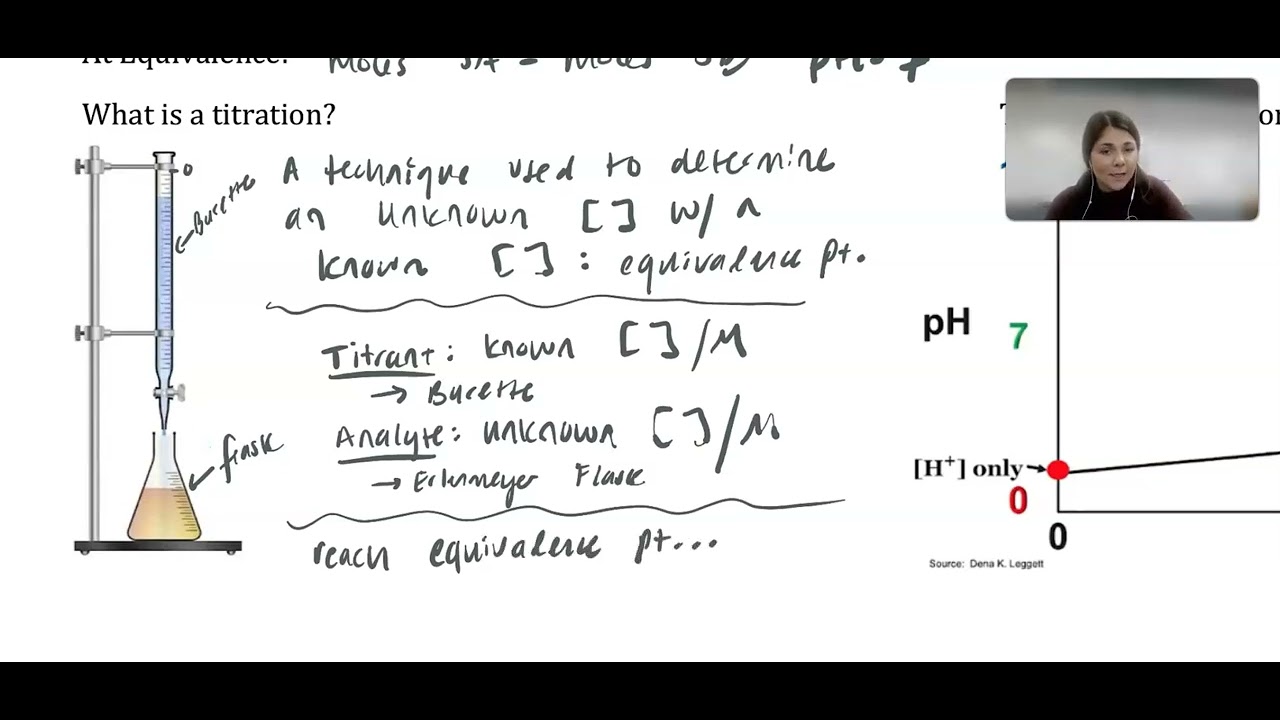 At Equivalence: Moles SA = Moles SB pH = 7
What is a titration?
0
Burette
A technique used to determine
an unknown [ ] w/ a
known [ ] : equivalence pt.
Titrant: known [ ] / M
→ Burette
Analyte: unknown [ ] / M
→ Erlenmeyer Flask
flask
reach equivalence pt...
pH 7
[H⁺] only
0
0
Source: Dena K. Leggett